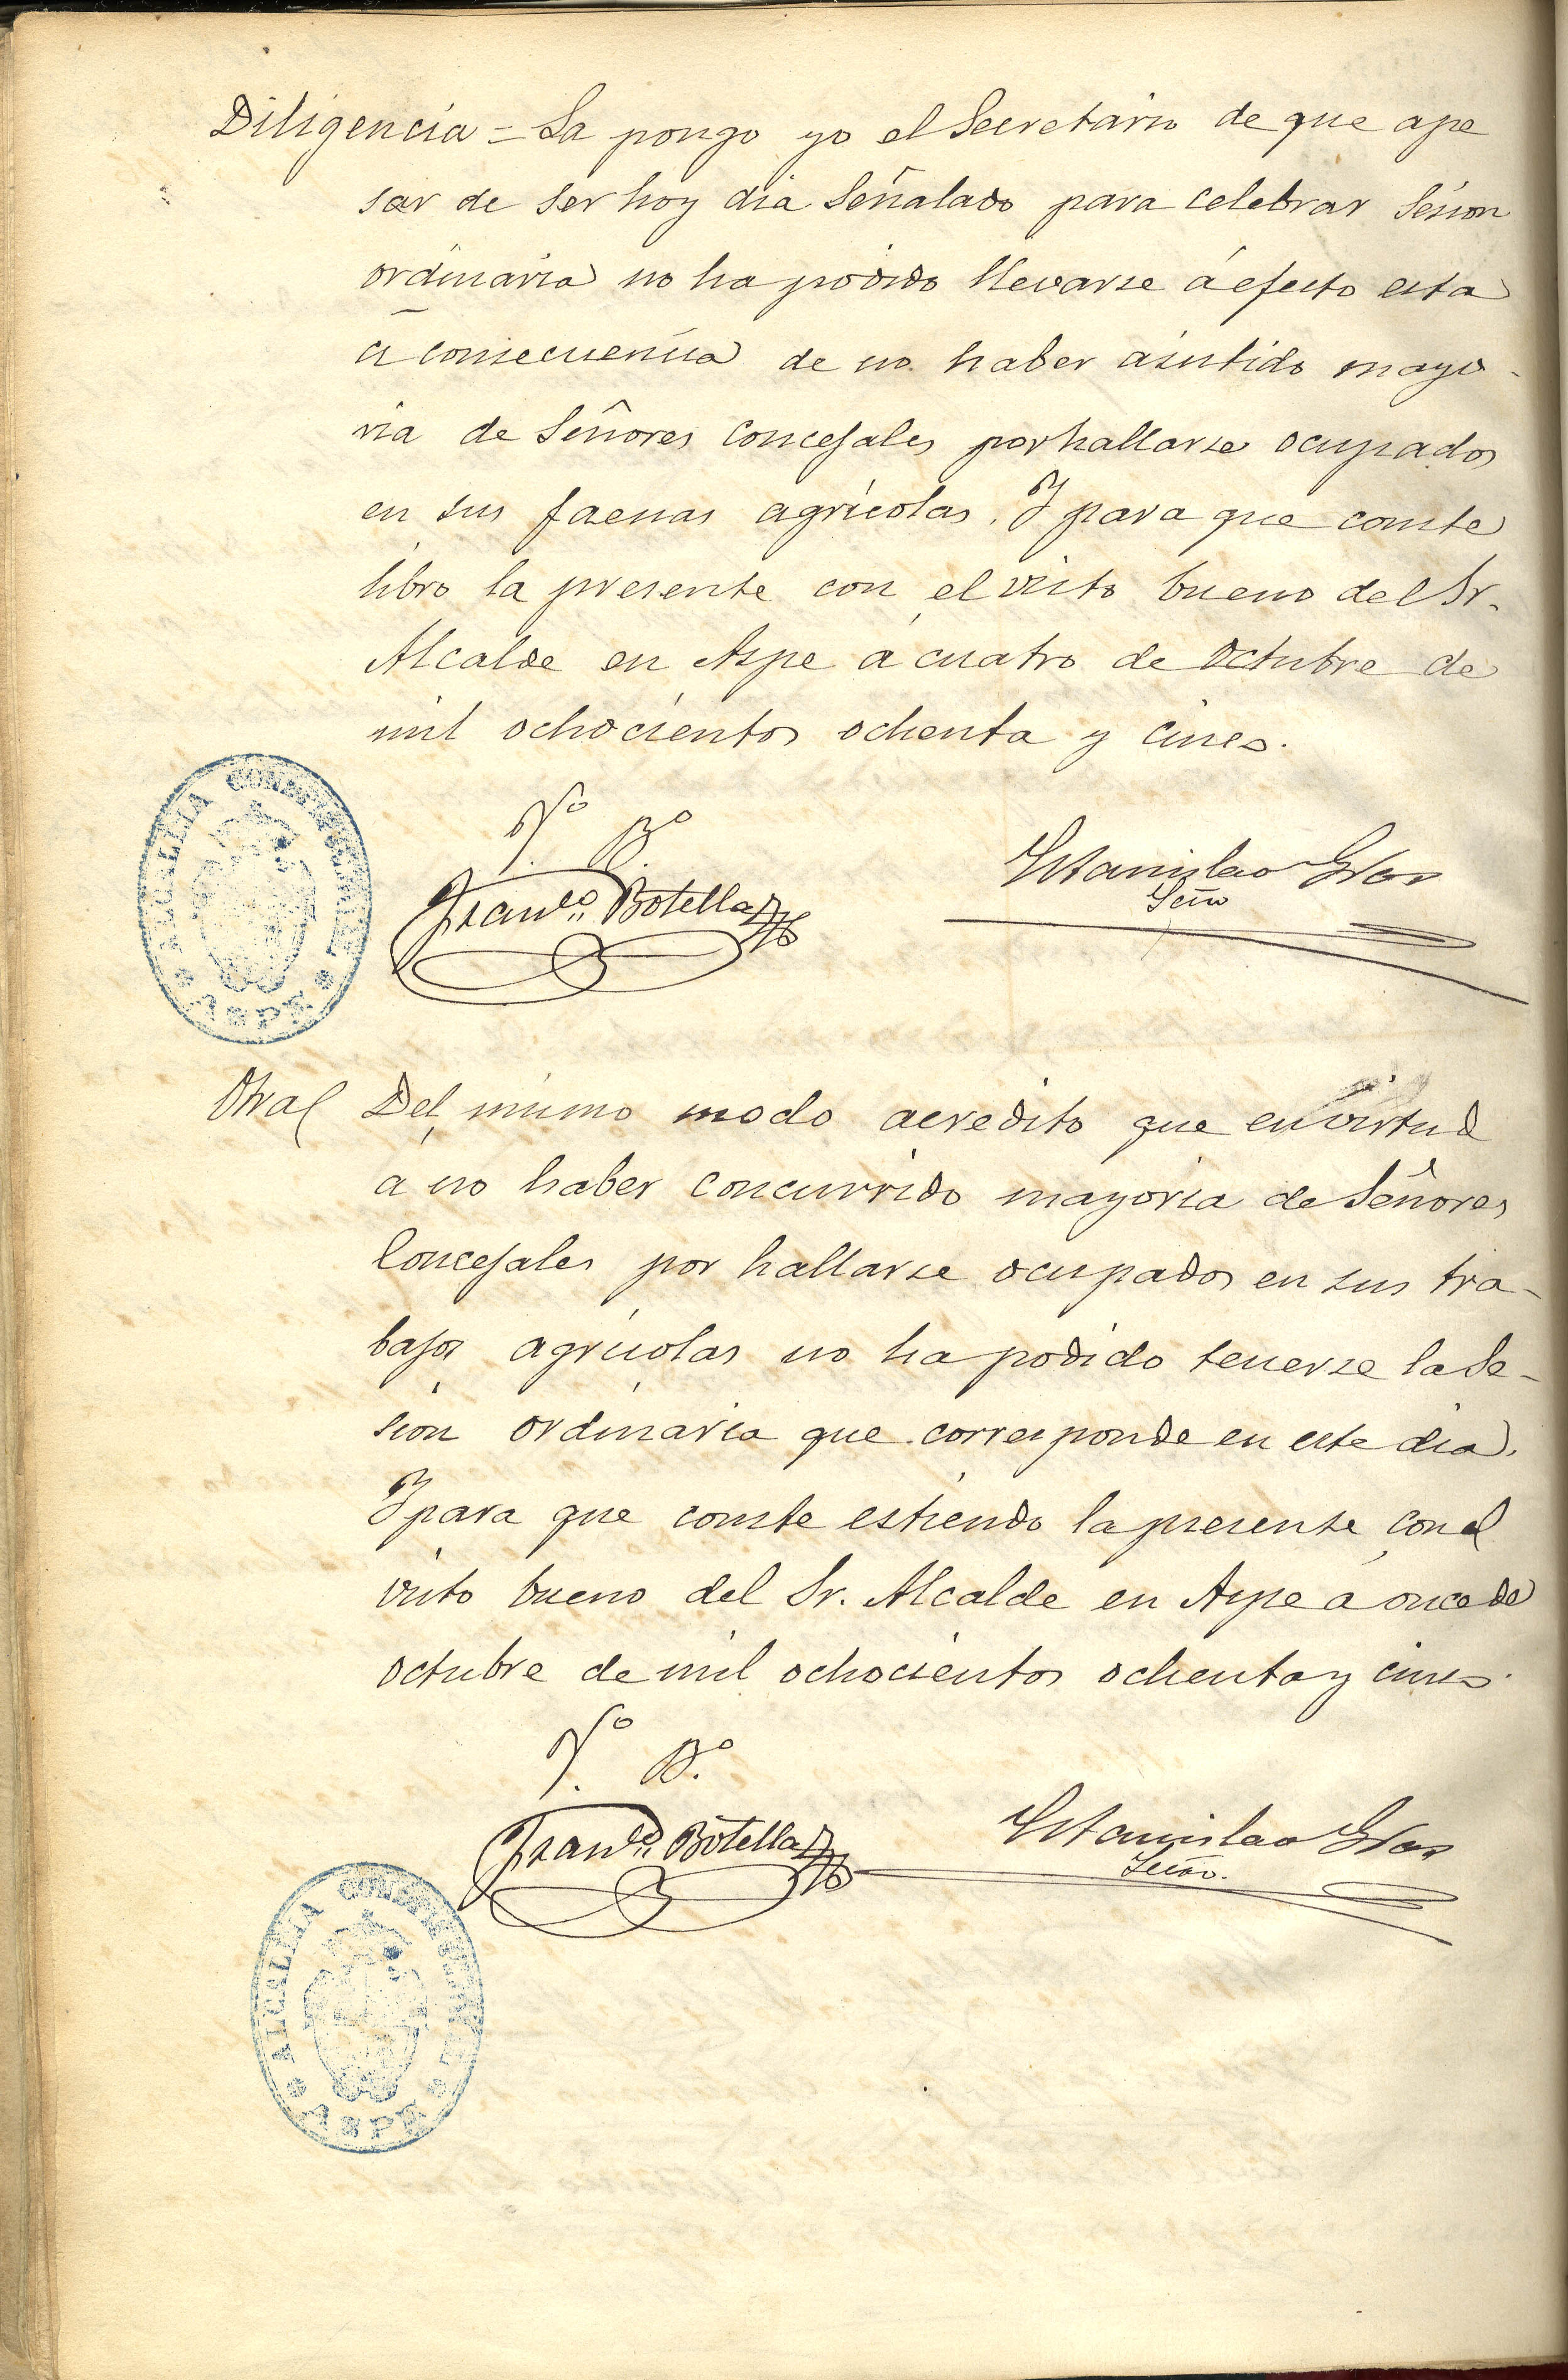 Diligencia = La pongo yo el Secretario de que ape
sar de ser hoy dia Señalado para celebrar Sesion
ordinaria no ha podido llevarse á efecto esta
á consecuencia de no haber asistido mayo-
ria de Señores concejales por hallarse ocupados
en sus faenas agrícolas. Y para que conste
libro la presente con el visto bueno del Sr.
Alcalde en Aspe á cuatro de Octubre de
mil ochocientos ochenta y cinco.
V.º B.º
Franco. Botella
Estanislao
Srio
ALCALDIA CONSTITUCIONAL
ASPE
Otra Del mismo modo acredito que en virtud
a no haber concurrido mayoria de Señores
Concejales por hallarse ocupados en sus tra-
bajos agrícolas no ha podido tenerse la Se-
sión ordinaria que corresponde en este dia.
Y para que conste estiendo la presente con el
visto bueno del Sr. Alcalde en Aspe á once de
octubre de mil ochocientos ochenta y cinco.
V.º B.º
Franco. Botella
Estanislao
Srio.
ALCALDIA CONSTITUCIONAL
ASPE